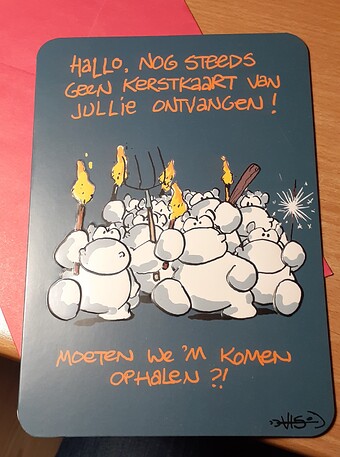 HALLO, NOG STEEDS
GEEN KERSTKAART VAN
JULLIE ONTVANGEN!
MOETEN WE 'M KOMEN
OPHALEN ?!